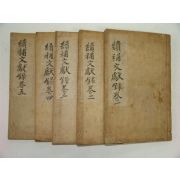 續補文獻錄卷一
續補文獻錄卷二
續補文獻錄卷三
續補文獻錄卷四
續補文獻錄卷五